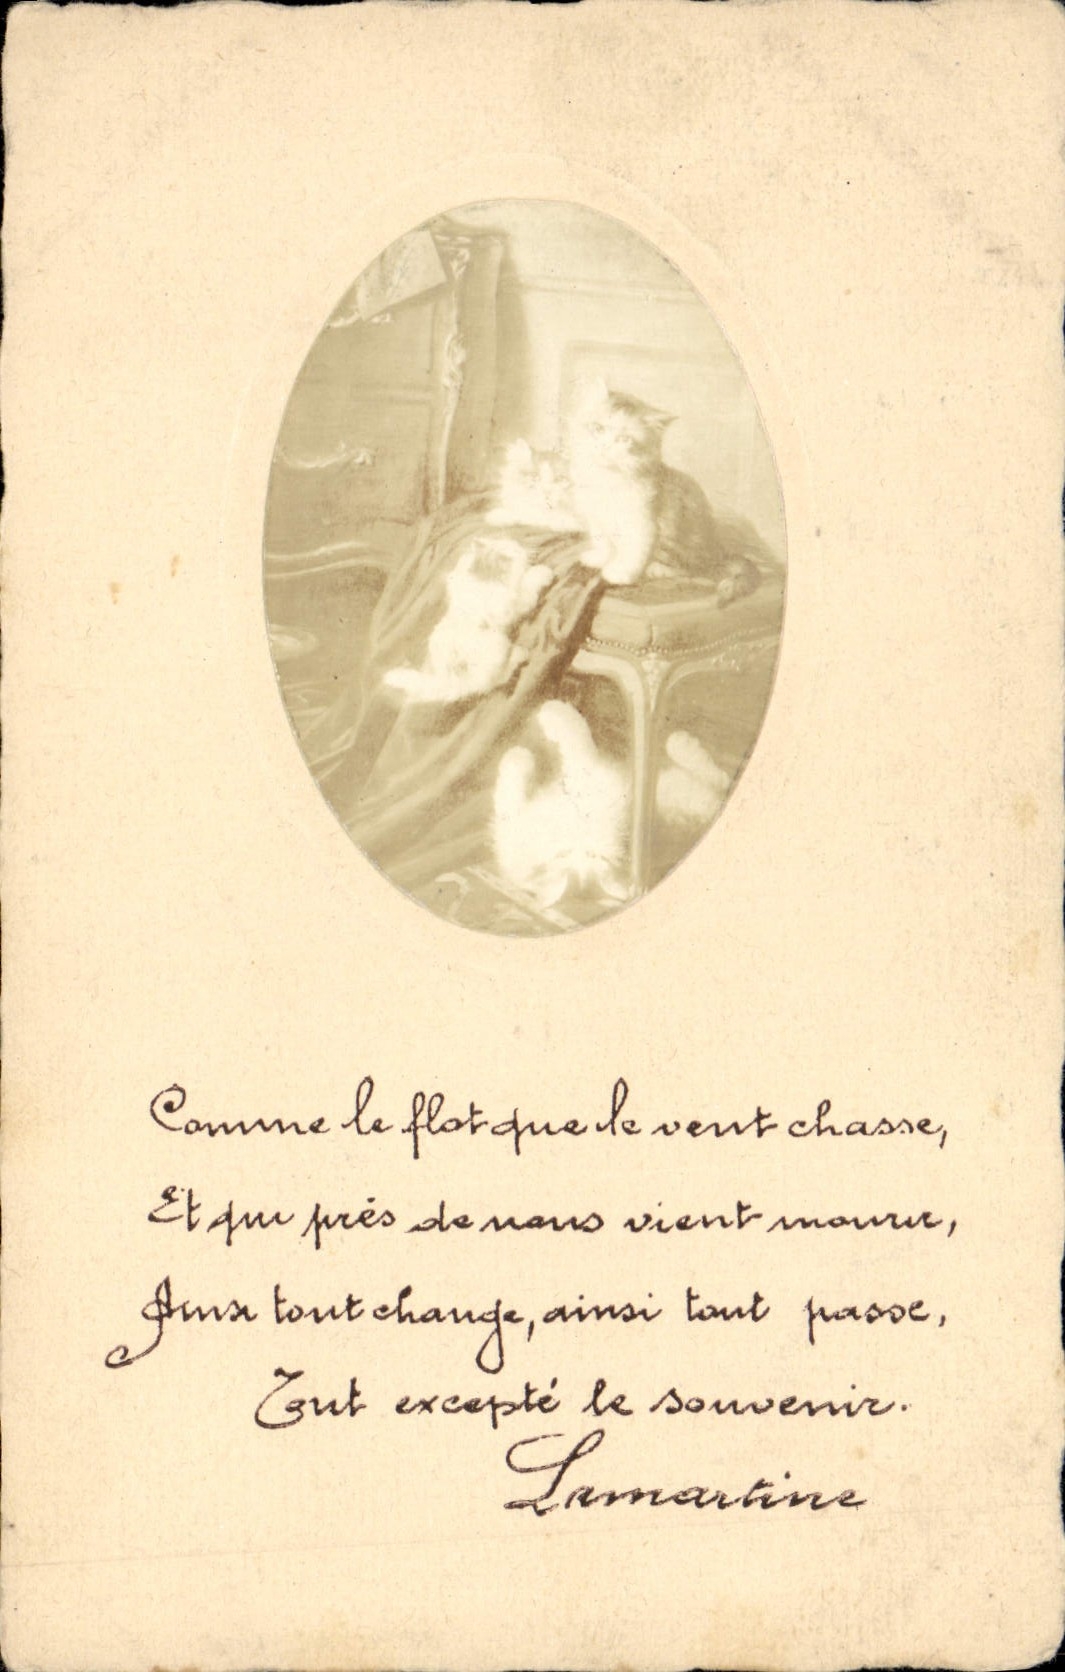 Comme le flot que le vent chasse,
Et qui près de nous vient mourir,
tout change, ainsi tout passe,
Tout excepté le souvenir.
Lamartine